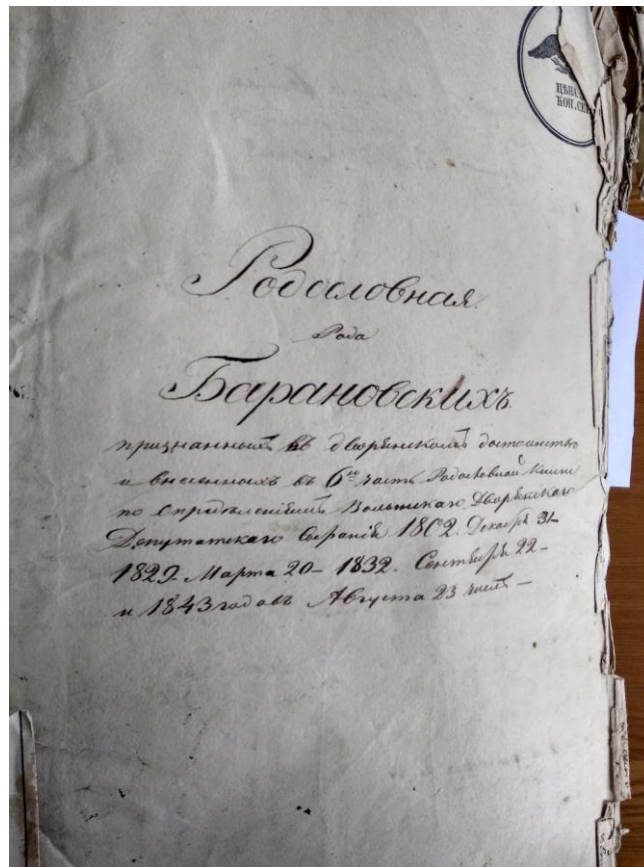 ЦѢНА
КОП. СЕР
Родословная
Рода
Барановскихъ
признанныхъ въ дворянскомъ достоинствѣ
и внесенныхъ въ 6ю часть Родословной Книги
по опредѣленіямъ Волынскаго Дворянскаго
Депутатскаго Собранія 1802. Декабря 31
1829 Марта 20 – 1832. Сентября 22 –
и 1843 годовъ Августа 23 числъ –